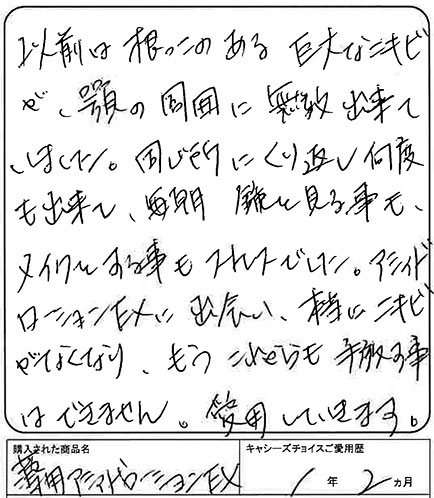 以前は根っこのある巨大なニキビ
が、顎の周囲に無数出来て
いました。同じ所にくり返し何度
も出来て、毎朝 鏡を見る事も、
メイクをする事もストレスでした。アシィド
ローションEXに出会い、本当にニキビ
がなくなり、もうこれからも手放す事
はできません。愛用していきます。
購入された商品名 キャシーズチョイスご愛用歴
薬用アシィドローションEX 1年2ヵ月